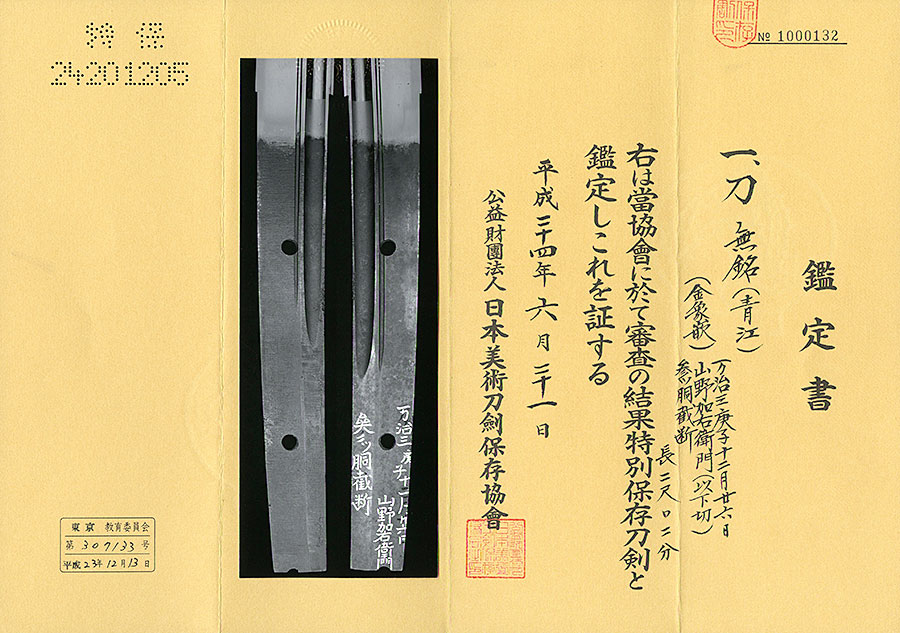 № 1000132
鑑定書
一、刀 無銘(青江)
(金象嵌)
万治三庚子十二月廿六日
山野加右衛門(以下切)
参ツ胴截断
長 二尺口二分
右は當協會に於て審査の結果特別保存刀剣と
鑑定しこれを証する
平成二十四年 六月 二十一日
公益財團法人 日本美術刀劍保存協會
特保
24201205
万治三
山野加右衛門
胴截断
東京 教育委員会
第 307133 号
平成23年12月13日